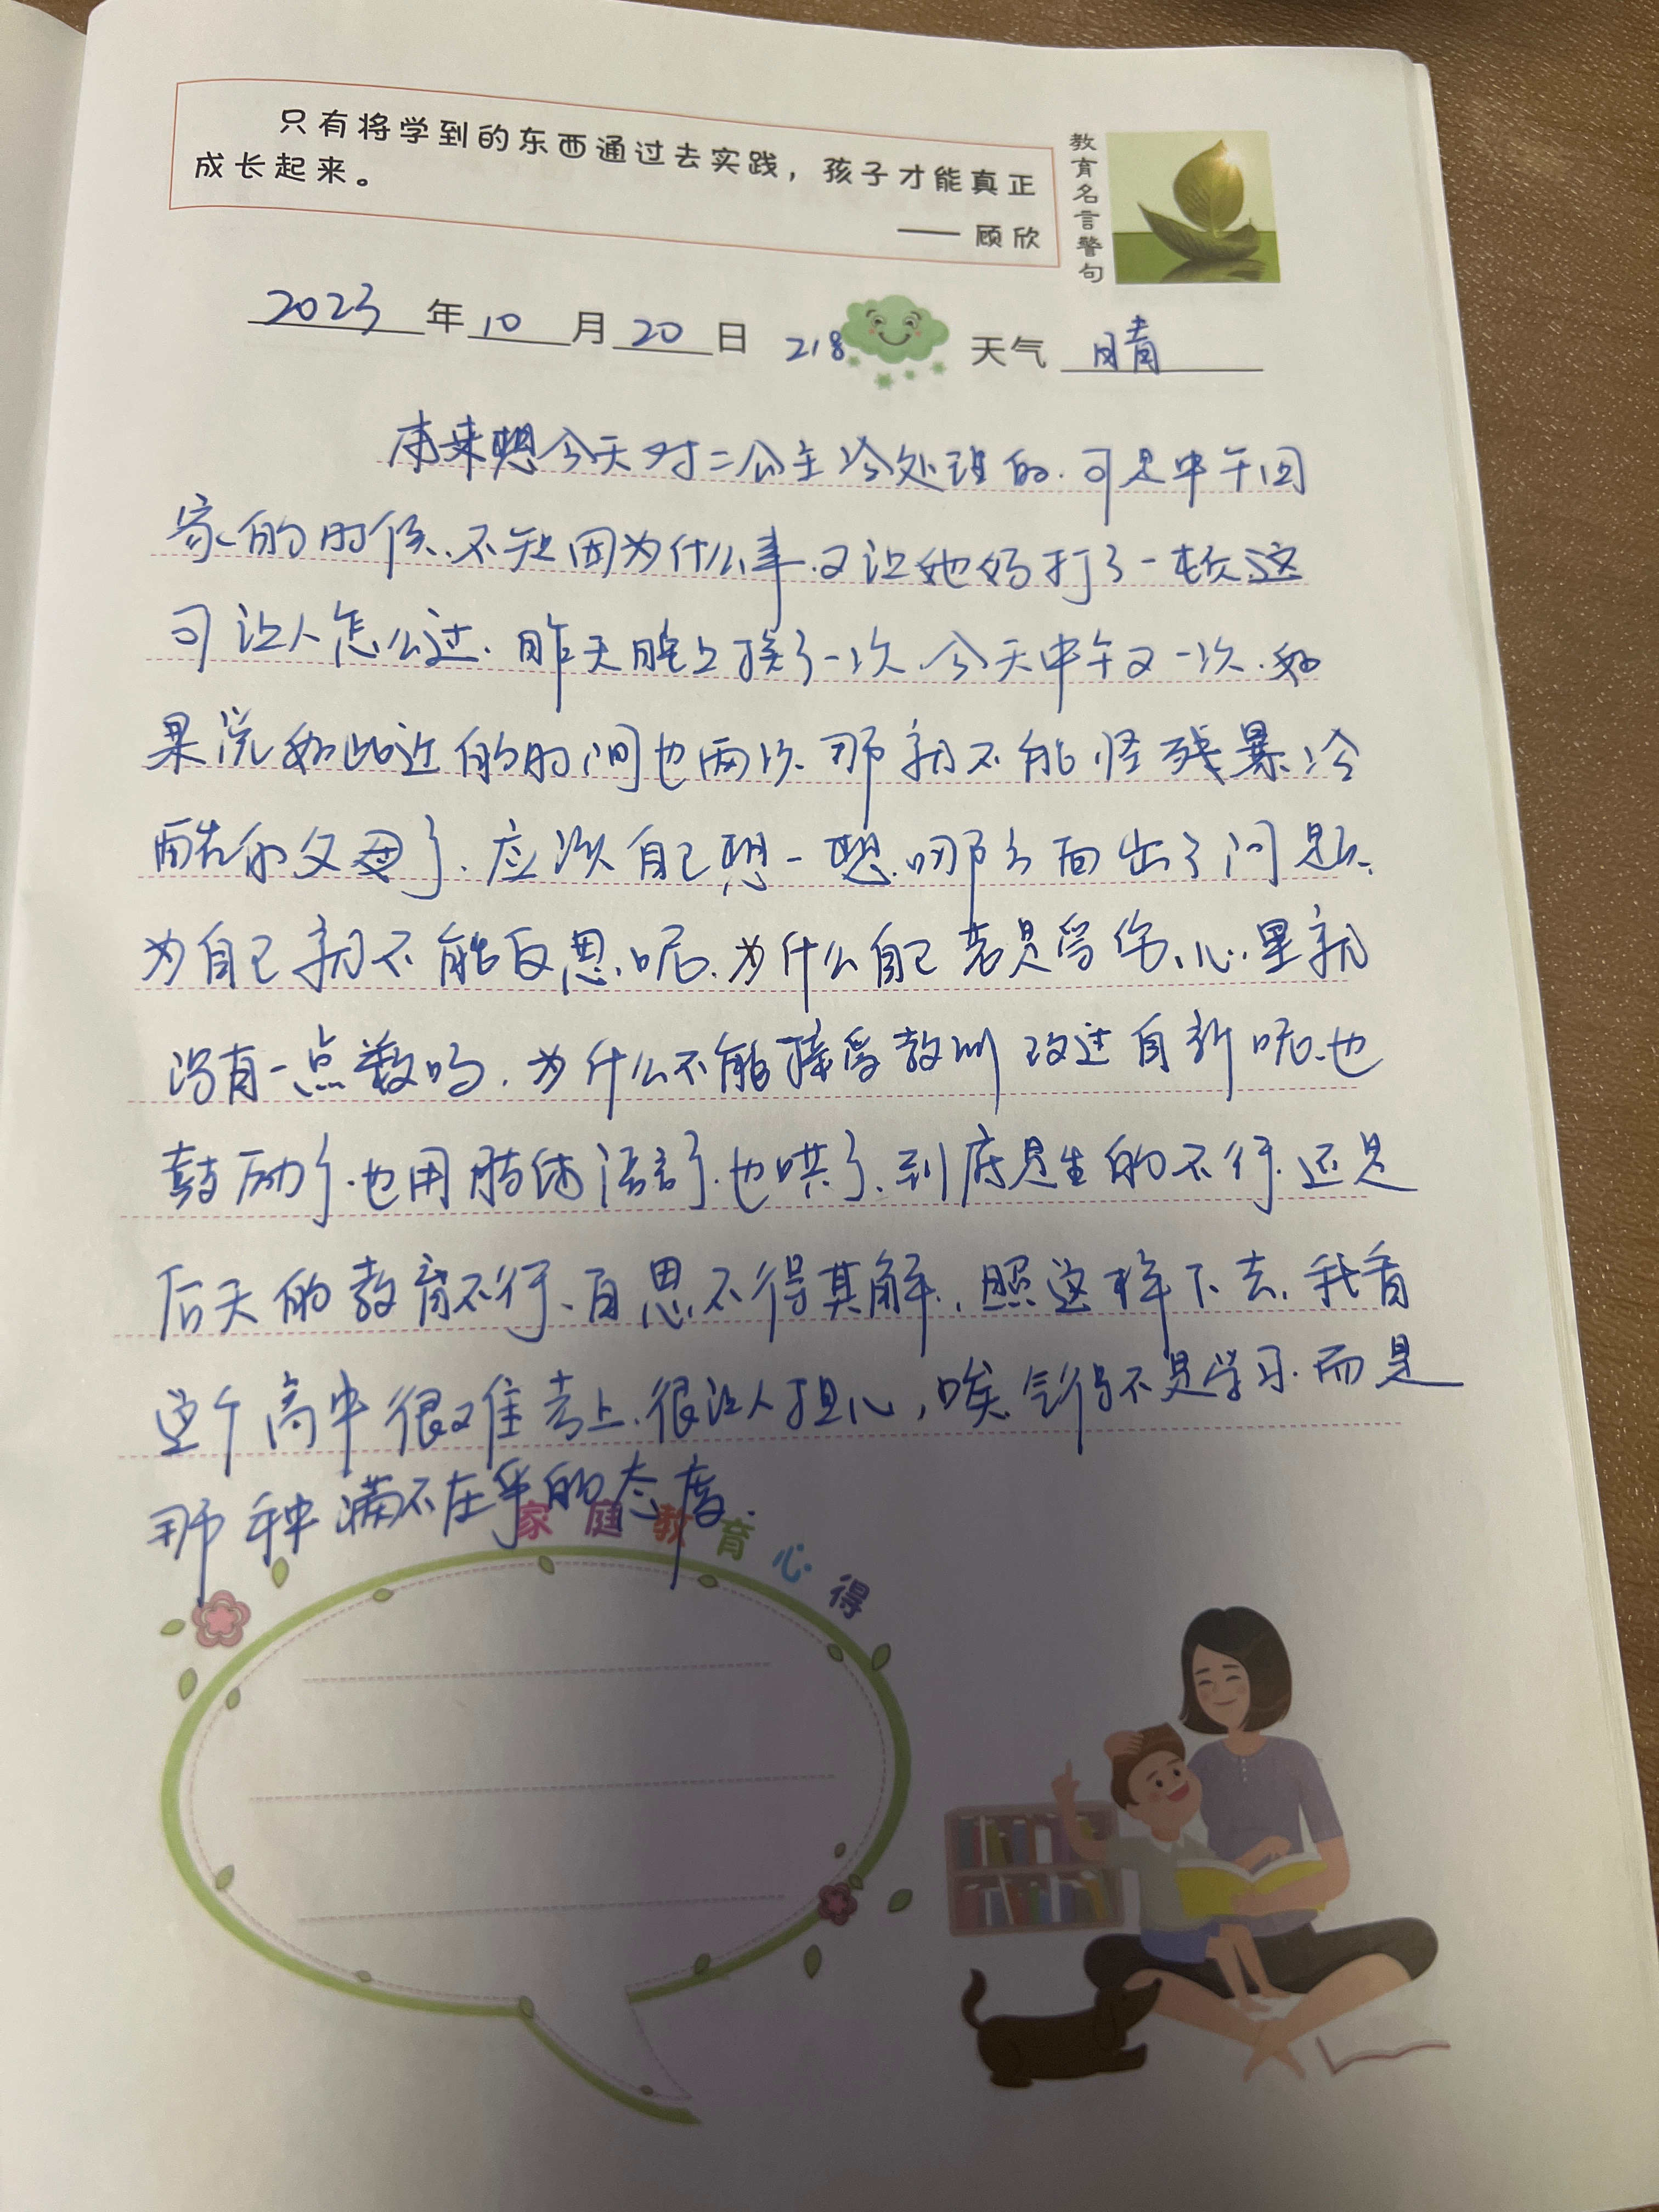 只有将学到的东西通过去实践，孩子才能真正
成长起来。
—— 顾欣
教育名言警句
2023年10月20日 218 天气 晴
本来想今天对二公主冷处理的.可是中午回
家的时候.不知因为什么事.又让她妈打了一顿.这
可让人怎么过.昨天晚上挨了一次.今天中午又一次.如
果说如此近的时间也两次.那就不能怪残暴冷
酷的父母了.应该自己想一想.哪方面出了问题.
为自己就不能反思呢.为什么自己老是受伤、心里就
没有一点数吗.为什么不能接受教训改过自新呢.也
鼓励了.也用肢体语言了.也哄了.到底是生的不行.还是
后天的教育不行、百思不得其解.照这样下去.我看
这个高中很难考上.很让人担心，唉.气得不是学习.而是
那种满不在乎的态度.
家庭教育心得